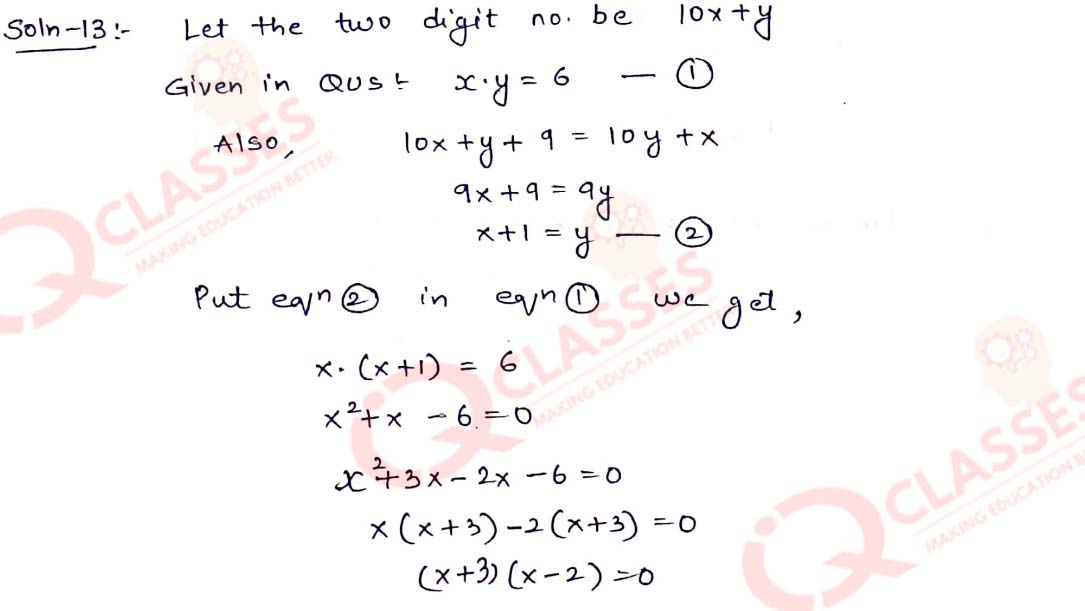 Soln-13:- Let the two digit no. be 10x+y
Given in QUS:- x·y = 6 — ①
Also, 10x+y+9 = 10y+x
9x+9 = 9y
x+1 = y — ②
Put eqn ② in eqn ① we get,
x·(x+1) = 6
x²+x -6 = 0
x²+3x-2x-6=0
x(x+3)-2(x+3)=0
(x+3)(x-2)=0
CLASSES
MAKING EDUCATION BETTER
CLASSES
MAKING EDUCATION BETTER
CLASSES
MAKING EDUCATION B